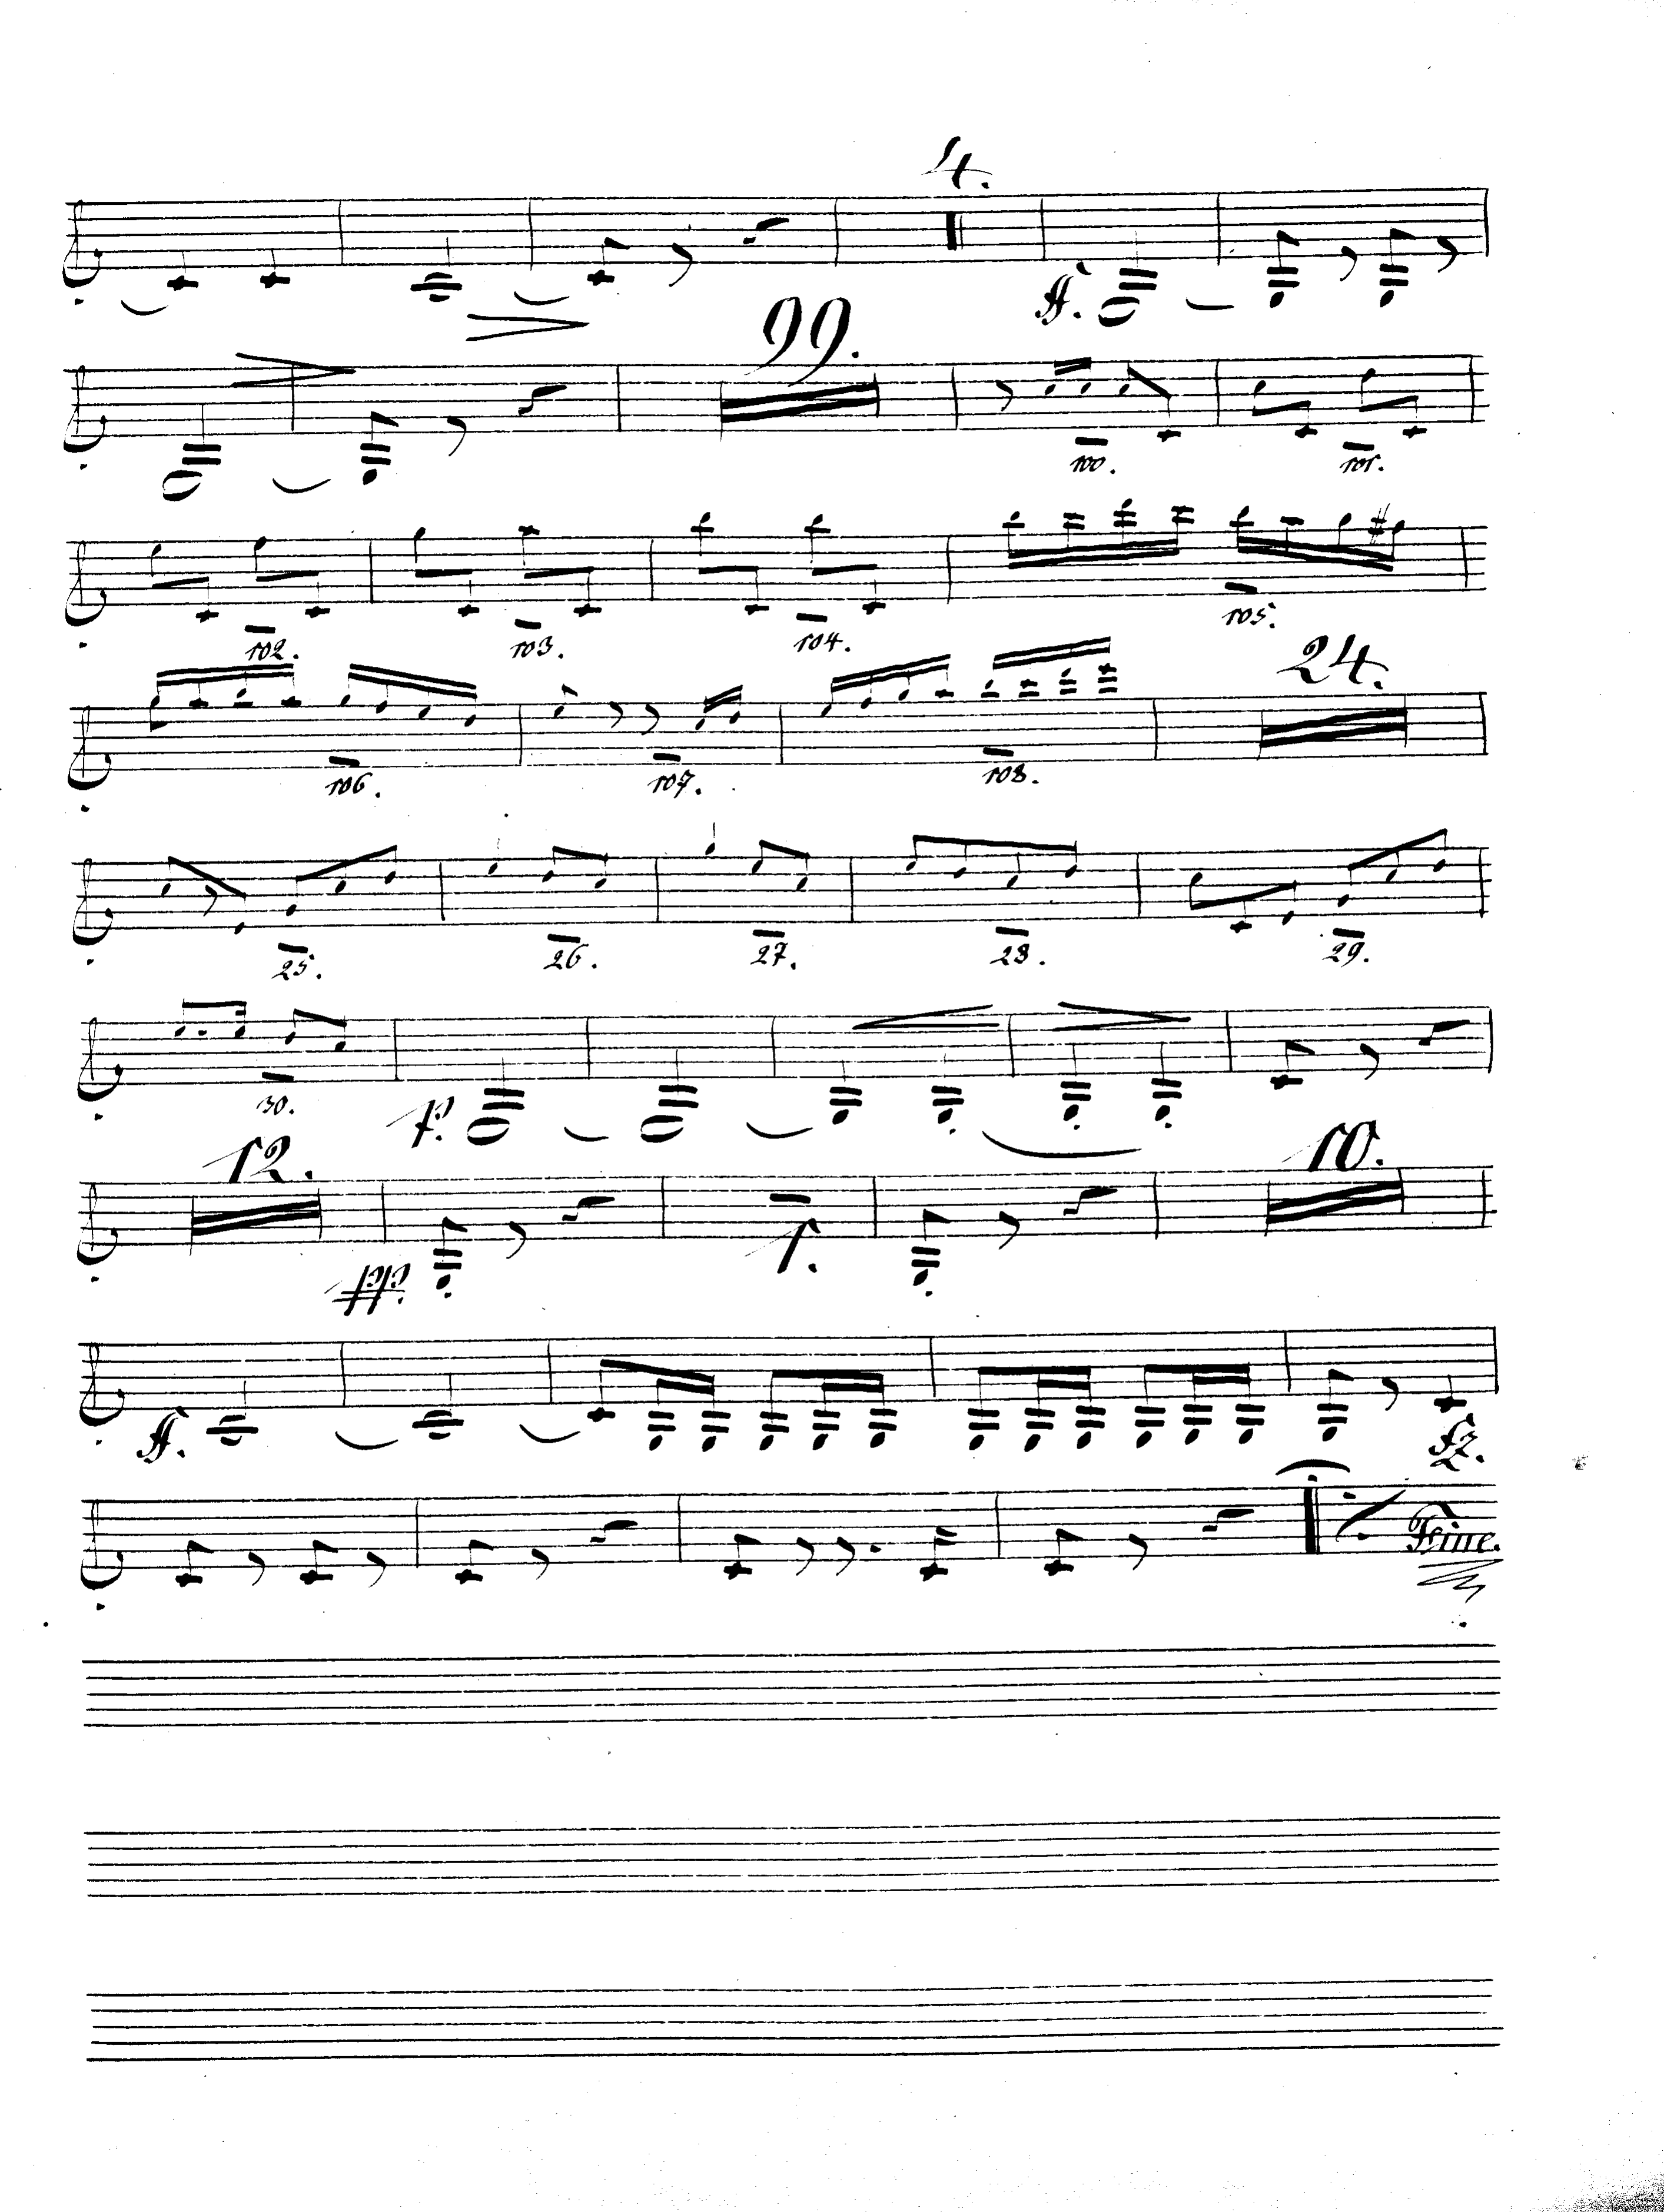 4.
ff.
99.
100. 101.
102. 103. 104. 105.
24.
106. 107. 108.
25. 26. 27. 28. 29.
30. p.
12. 10.
ppp. 1.
ff. fz.
Fine.